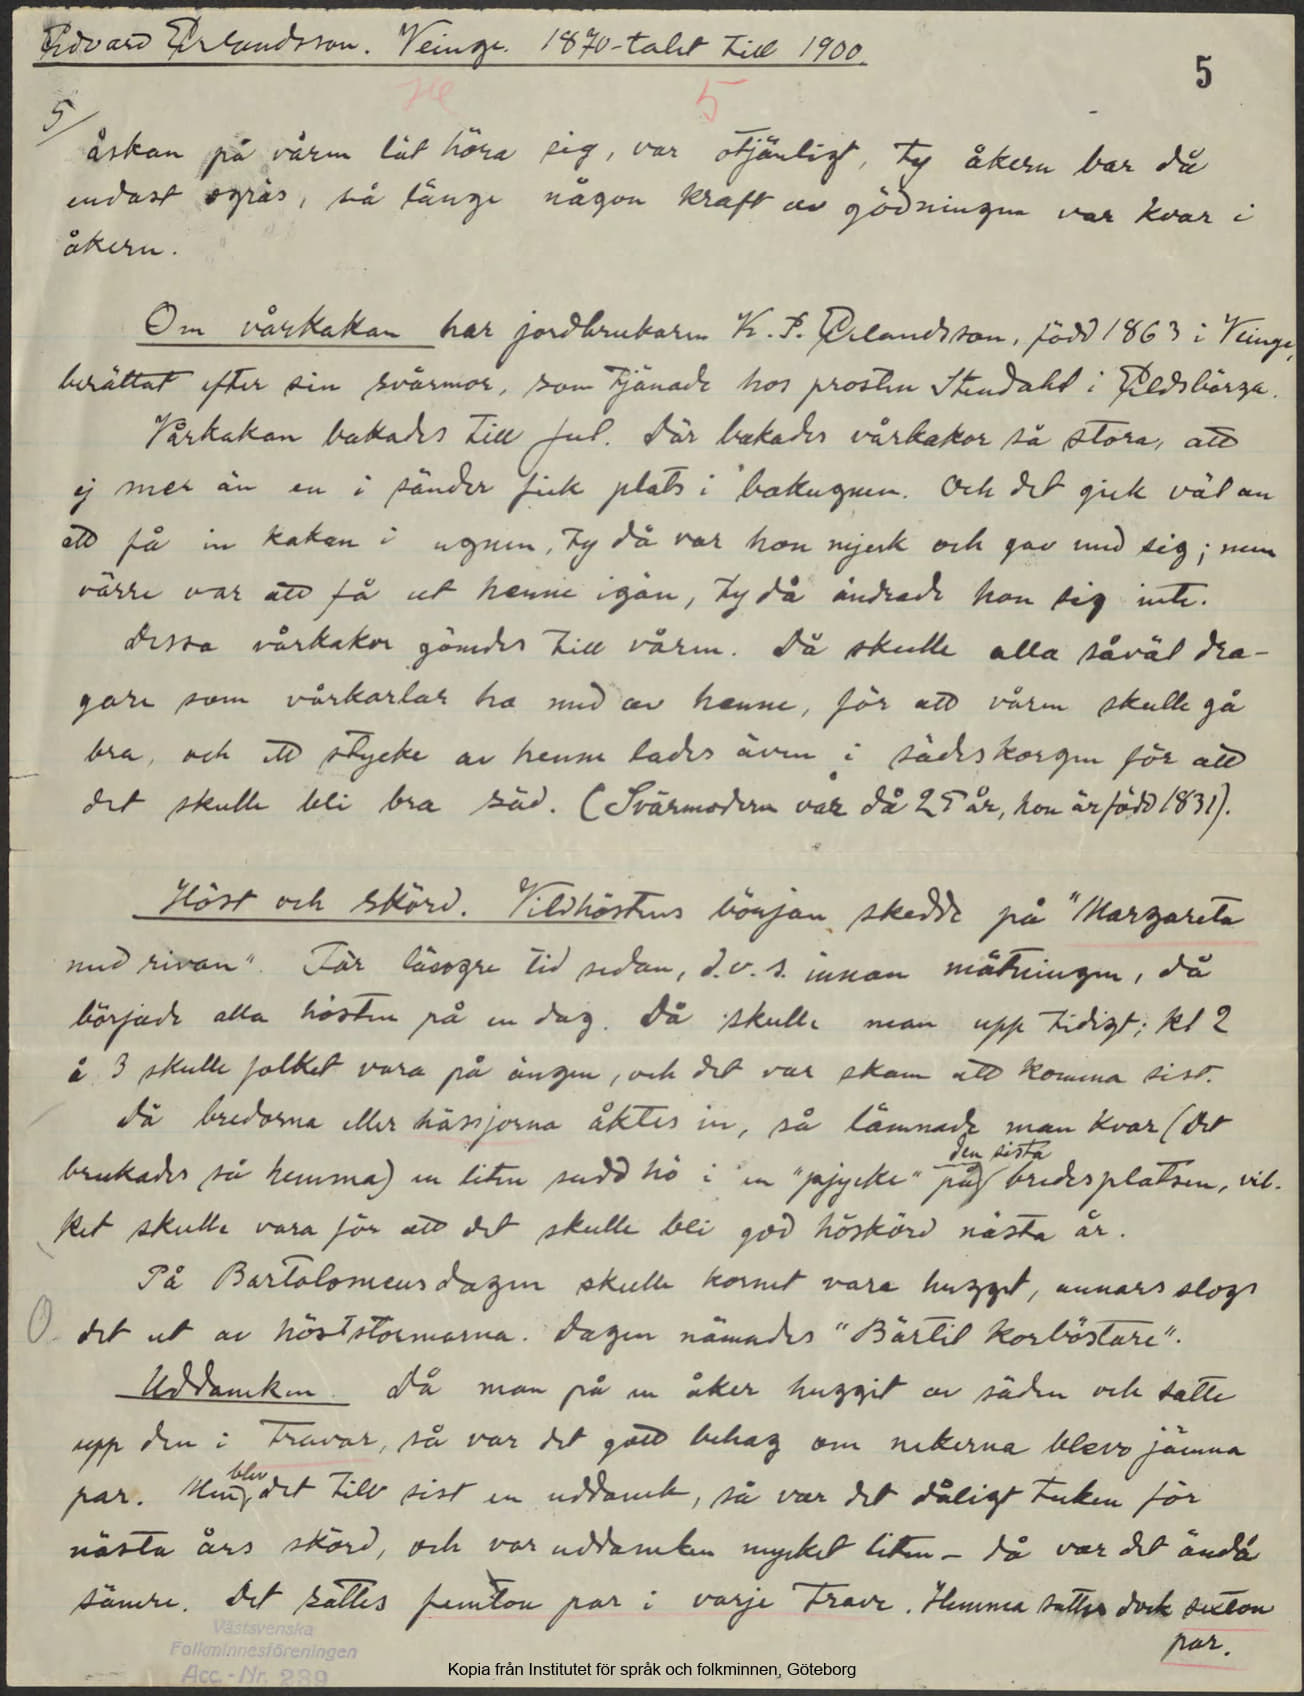 Edvard Erlandsson. Veinge. 1870-talet till 1900.
5
5
5/
åskan på våren låt höra sig, var otjänligt, ty åkern bar då
endast ogräs, så länge någon kraft av gödningen var kvar i
åkern.
Om vårkakan har jordbrukaren K. P. Erlandsson, född 1863 i Veinge,
berättat efter sin svärmor, som tjänade hos prosten Stendahl i Eldsbärga.
Vårkakan bakades till jul. Där bakades vårkakor så stora, att
ej mer än en i sänder fick plats i bakugnen. Och det gick väl an
att få in kakan i ugnen, ty då var hon mjuk och gav med sig; men
värre var att få ut henne igän, ty då ändrade hon sig inte.
Dessa vårkakor gömdes till våren. Då skulle alla såväl dra-
gare som vårkarlar ha med av henne, för att våren skulle gå
bra, och ett stycke av henne lades även i sädeskorgen för att
det skulle bli bra säd. (Svärmodern var då 25 år, hon är född 1831).
Höst och skörd. Vildhöstens början skedde på "Margareta
med rivan". För längre tid sedan, d.v.s. innan mätningen, då
började alla hösten på en dag. Då skulle man upp tidigt; kl 2
à 3 skulle folket vara på ängen, och det var skam att komma sist.
Då bredorna eller hässjorna åktes in, så lämnade man kvar (det
brukades så hemma) en liten sudd hö i en "pjycke" på den sista bredesplatsen, vil-
ket skulle vara för att det skulle bli god höskörd nästa år.
På Bartolomeusdagen skulle kornet vara hugget, annars slogs
det ut av höststormarna. Dagen nämndes "Bärtil korböstare".
Uddaneken. Då man på en åker huggit av säden och satte
upp den i travar, så var det gott behag om nekerna blevo jämna
par. Men blev det till sist en uddanek, så var det dåligt tecken för
nästa års skörd, och var uddaneken mycket liten – då var det ändå
sämre. Det sattes femton par i varje trave. Hemma sattes dock sexton
par.
Västsvenska
Folkminnesföreningen
Acc.-Nr. 239
Kopia från Institutet för språk och folkminnen, Göteborg